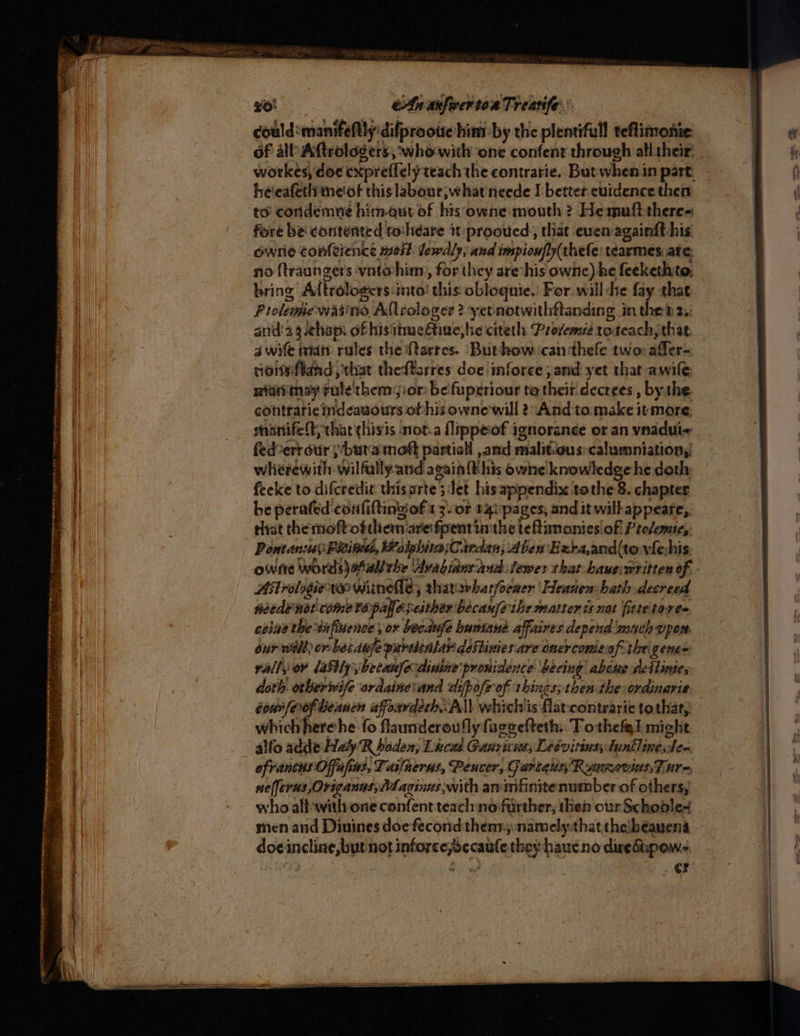 20 An answer to a Treatise
could manifestly disprooue him by the plentifull testimonie
of all Astrologers, who with one consent through all their
workes, doe expressely teach the contrarie. But when in part
he easeth me of this labour, what neede I better euidence then
to condemne him out of his owne mouth? He must there-
fore be contented to heare it prooued, that euen against his
owne conscience most lewdly, and impiously (these tearmes are
no straungers vnto him, for they are his owne) he seeketh to
bring Astrologers into this obloquie. For will he say that
Ptolemie was no Astrologer? yet notwithstanding in the 2.
and 23 chap. of his he citeth Ptolemie to teach, that
a wise man rules the starres. But how can these two asser-
tions stand, that the starres doe inforce, and yet that a wise
man may rule them; or be superiour to their decrees, by the
contrarie indeauours of his owne will? And to make it more
manifest, that this is not a slippe of ignorance or an vnadui-
sed errour, but a most partiall, and malitious calumniation,
wherewith wilfully and against his owne knowledge he doth
seeke to discredit this arte; let his appendix to the 8. chapter
be perused consisting of 13. or 14 pages, and it will appeare,
that the most of them are spent in the testimonies of Ptolemie,
Pontanus, Ficinus, Wolphius, Cardan, Aben Ezra, and (to vse his
owne words) of all the Arabians and Iewes that haue written of
Astrologie to witnesse, that whatsoeuer Heauen hath decreed
needs not come to passe, either because the matter is not fitte to re-
ceiue the influence, or because humane affaires depend much vpon
our will, or because particular destinies are ouercome of the gene-
rally or lastly, because diuine prouidence beeing aboue destinie,
doth otherwise ordaine and dispose of things, then the ordinarie
course of heauen affoardeth. All which is flat contrarie to that,
which here he so slaunderously suggesteth. To these I might
also adde Haly Rhoden, Lucas Gauricus, Leovitius, Iunctine, Ie-
ofrancus Offusius, Taisnerus, Peucer, Garcæus, Ranzovius, Tur-
nesserus, Origanus, Maginus, with an infinite number of others,
who all with one consent teach no further, then our Schoole-
men and Diuines doe second them, namely that the heauens
doe incline, but not inforce, because they haue no direct pow-
er